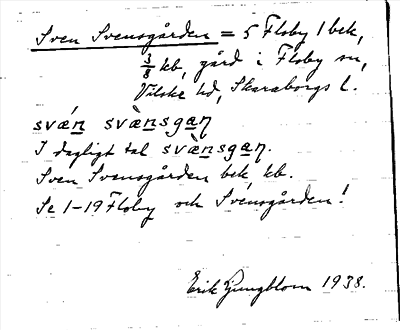 Sven Svensgården = 5 Floby 1 bek,
3/8 kb, gård i Floby sn,
Vilske hd, Skaraborgs l.
svæ̀n svæ̀nsgaɳ
I dagligt tal svæ̀nsgaɳ.
Sven Svensgården bek, kb.
Se 1-19 Floby och Svensgården!
Erik Ljungblom 1938.